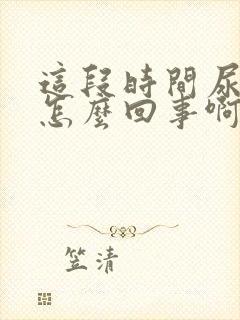 這段時間尿
怎麼回事啊
笠清